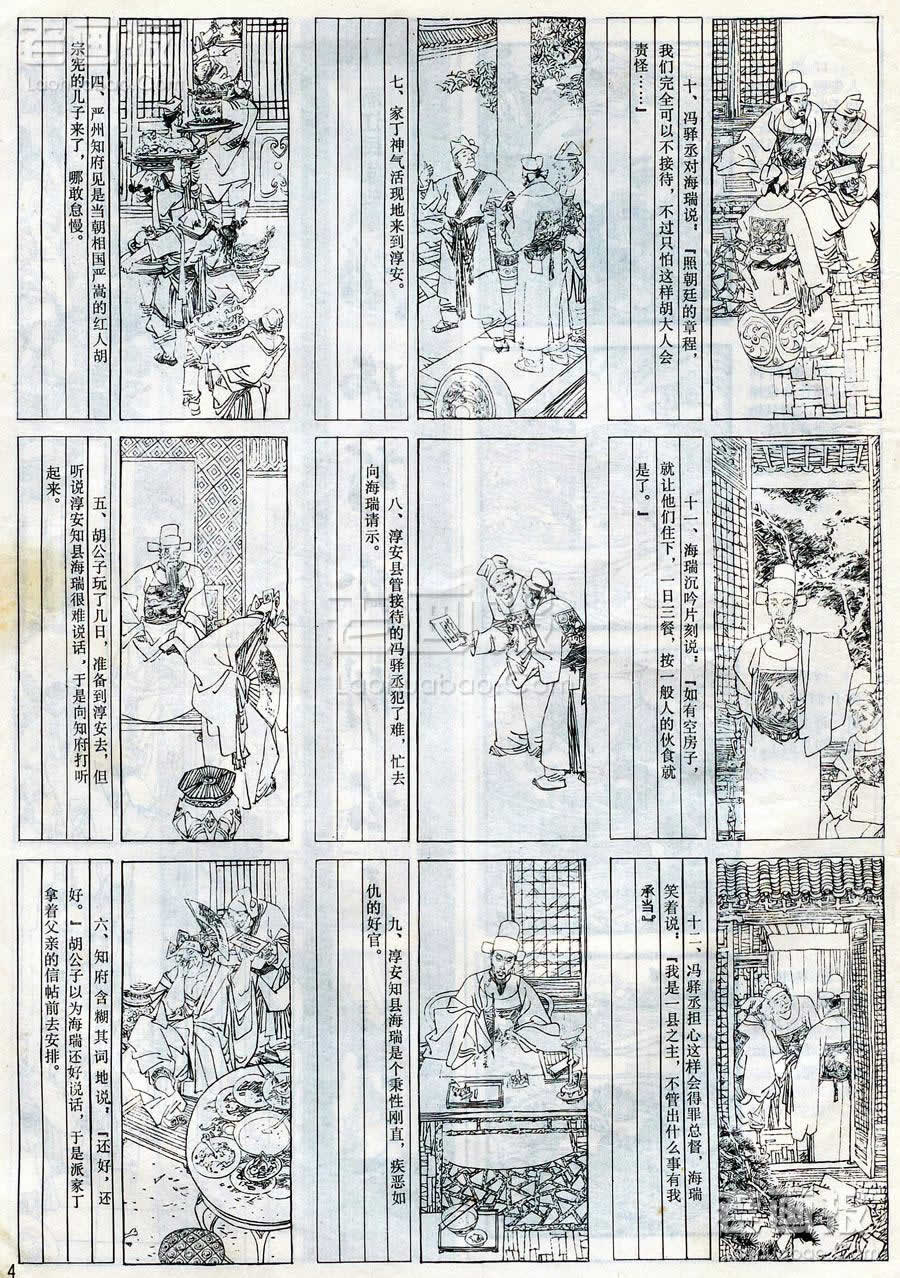 四、严州知府见是当朝相国严嵩的红人胡
宗宪的儿子来了，哪敢怠慢。
五、胡公子玩了几日，准备到淳安去，但
听说淳安知县海瑞很难说话，于是向知府打听
起来。
六、知府含糊其词地说：“还好，还
好。”胡公子以为海瑞还好说话，于是派家丁
拿着父亲的信帖前去安排。
七、家丁神气活现地来到淳安。
八、淳安县管接待的冯驿丞犯了难，忙去
向海瑞请示。
九、淳安知县海瑞是个秉性刚直，疾恶如
仇的好官。
十、冯驿丞对海瑞说：“照朝廷的章程，
我们完全可以不接待，不过只怕这样胡大人会
责怪……”
十一、海瑞沉吟片刻说：“如有空房子，
就让他们住下，一日三餐，按一般人的伙食就
是了。”
十二、冯驿丞担心这样会得罪总督，海瑞
笑着说：“我是一县之主，不管出什么事有我
承当”。
4
老画报
Laohuabao.com